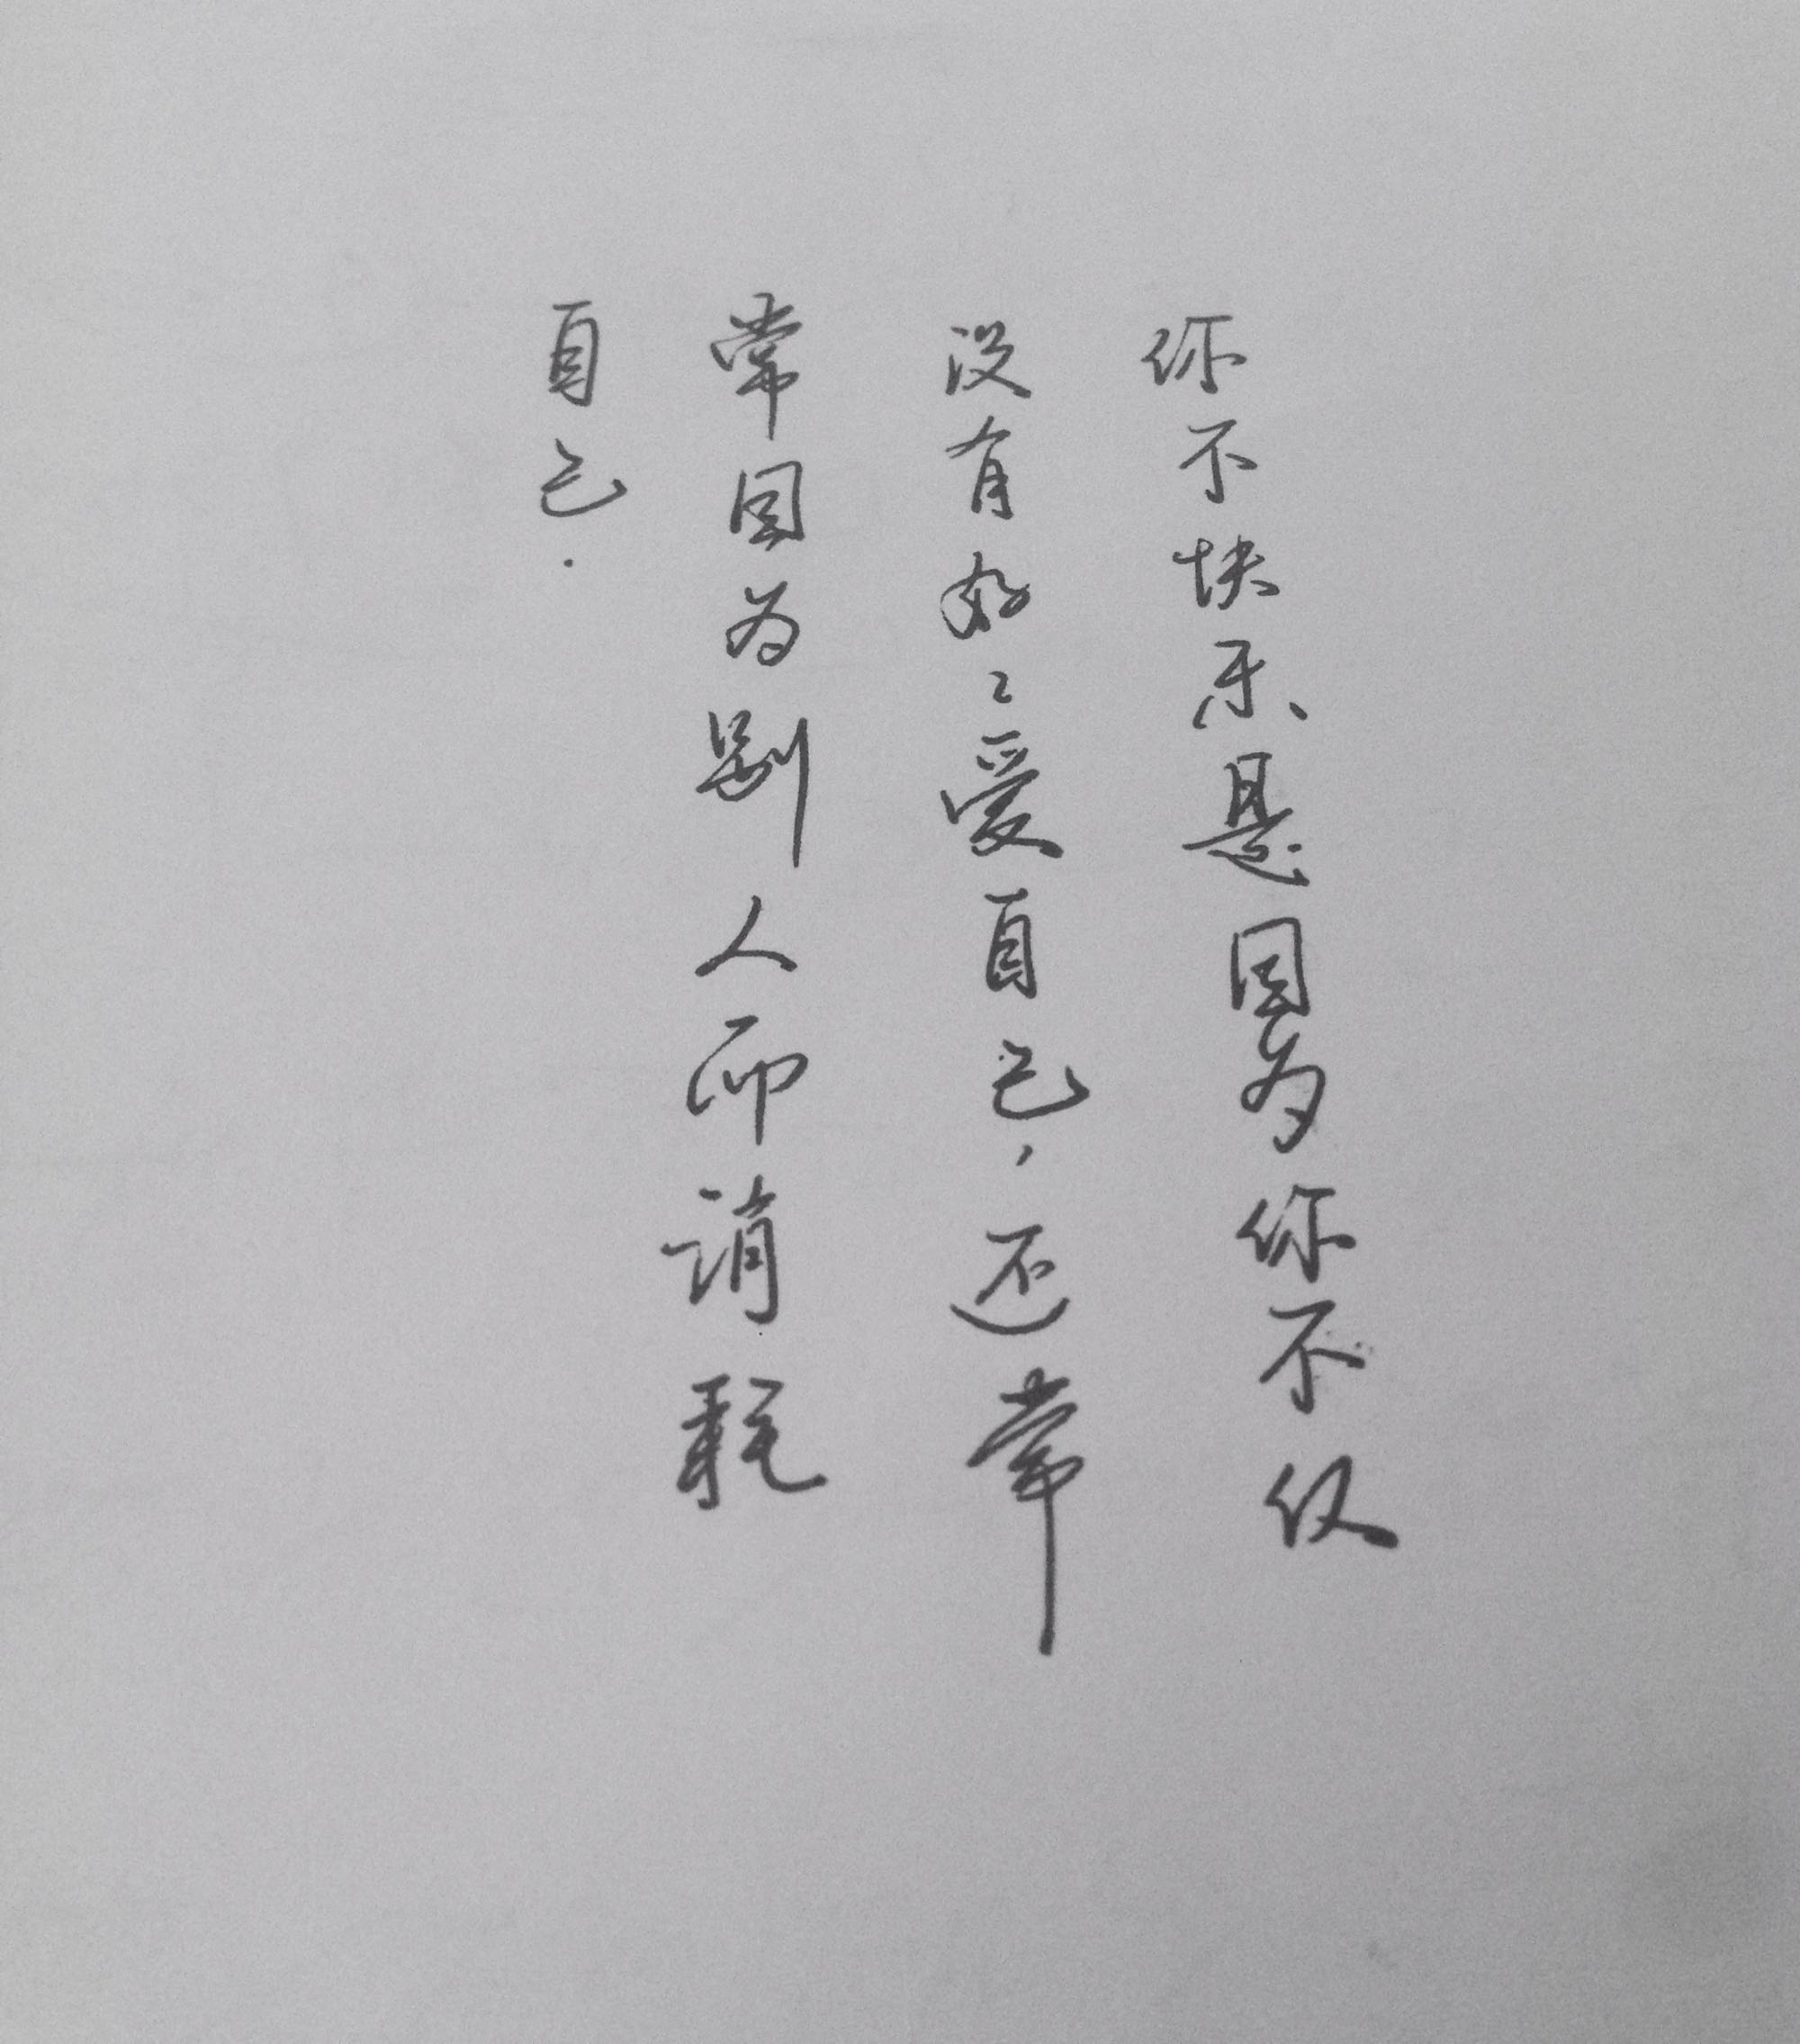 你不快乐是因为你不仅
没有好〻爱自己，还常
常因为别人而消耗
自己.